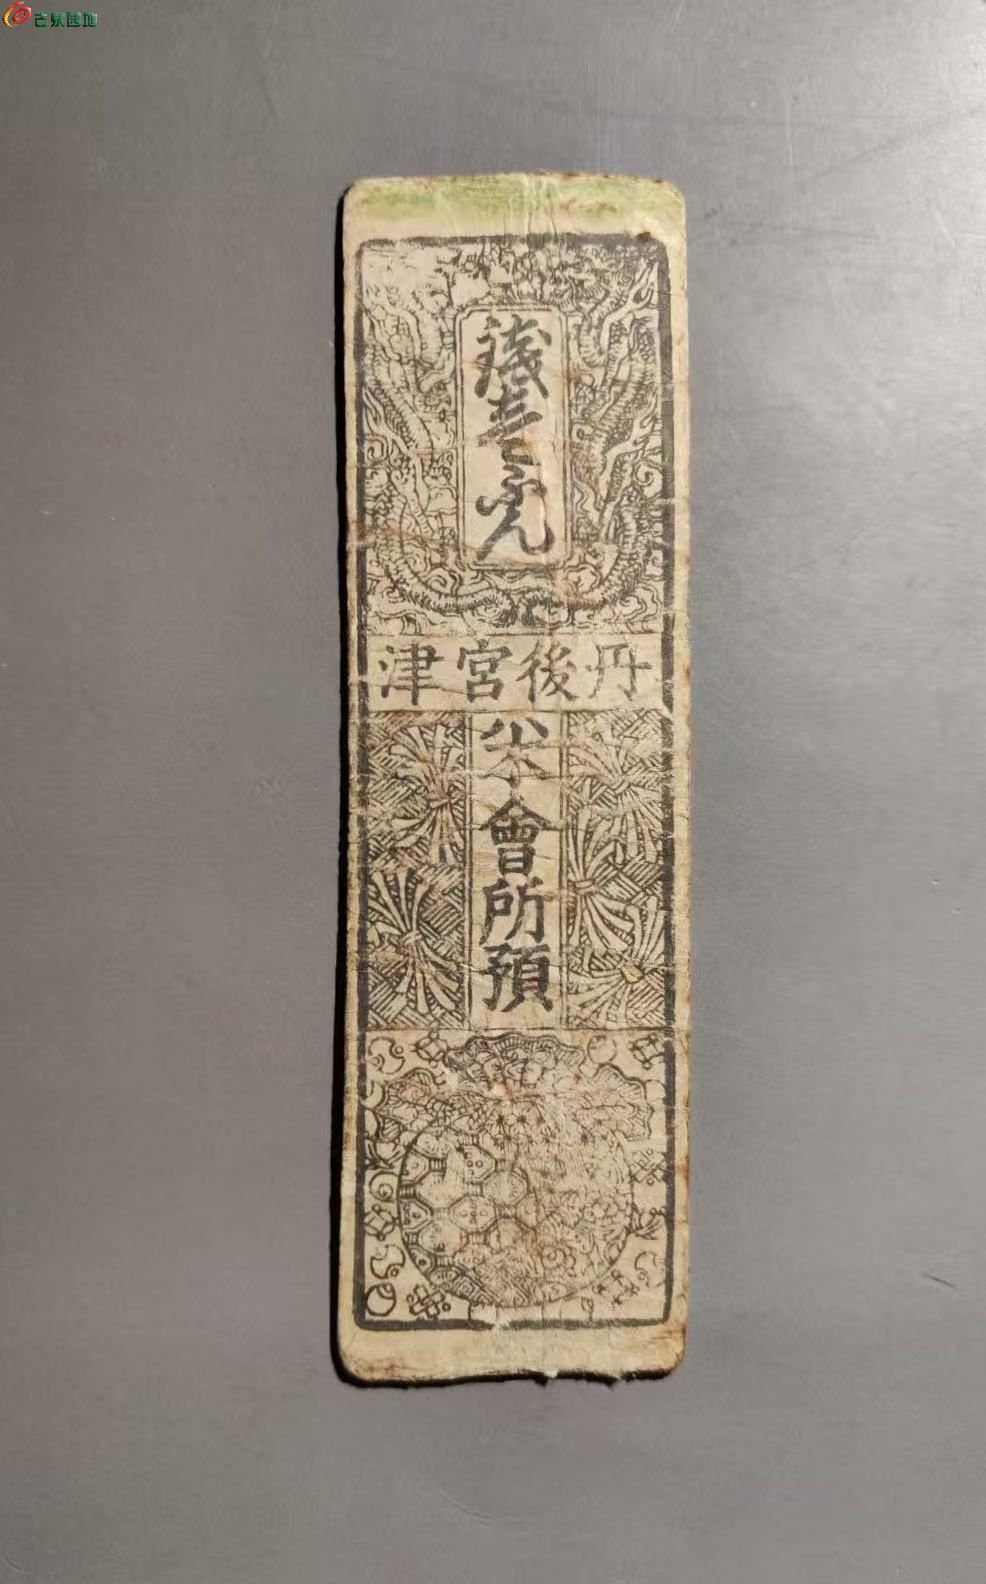 古泉园地
銭壹ふん
丹後宮津
會所預